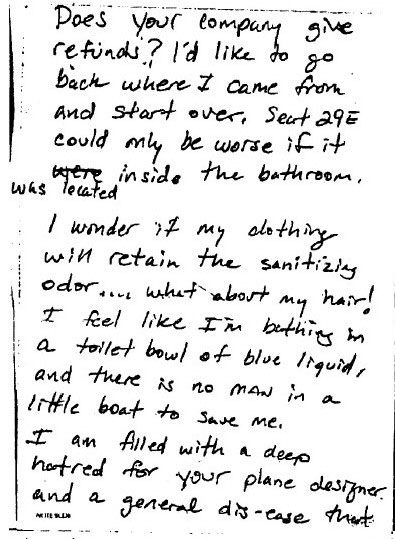 Does your company give
refunds? I'd like to go
back where I came from
and start over. Seat 29E
could only be worse if it
were inside the bathroom.
was located
I wonder if my clothing
will retain the sanitizing
odor.... what about my hair!
I feel like I'm bathing in
a toilet bowl of blue liquid,
and there is no man in a
little boat to save me.
I am filled with a deep
hatred for your plane designer
and a general dis-ease that